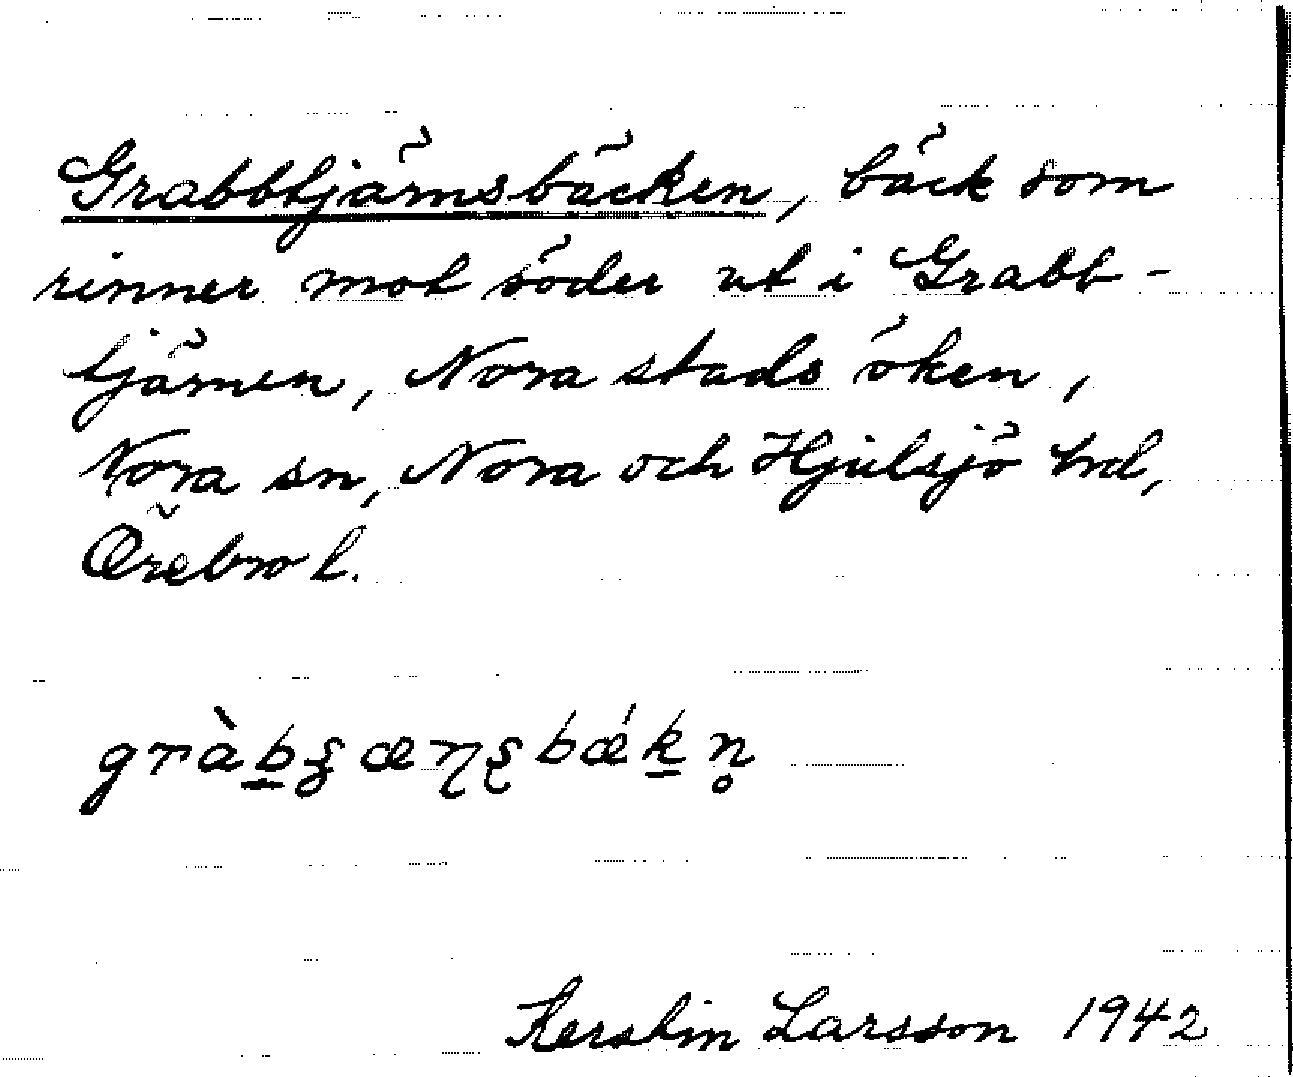 Grabbtjärnsbäcken, bäck som
rinner mot söder ut i Grabb-
tjärnen, Nora stads öken,
Nora sn, Nora och Hjulsjö hrd,
Örebro l.
gràb̲ʂæɳʂbǽk̲n̥
Kerstin Larsson 1942